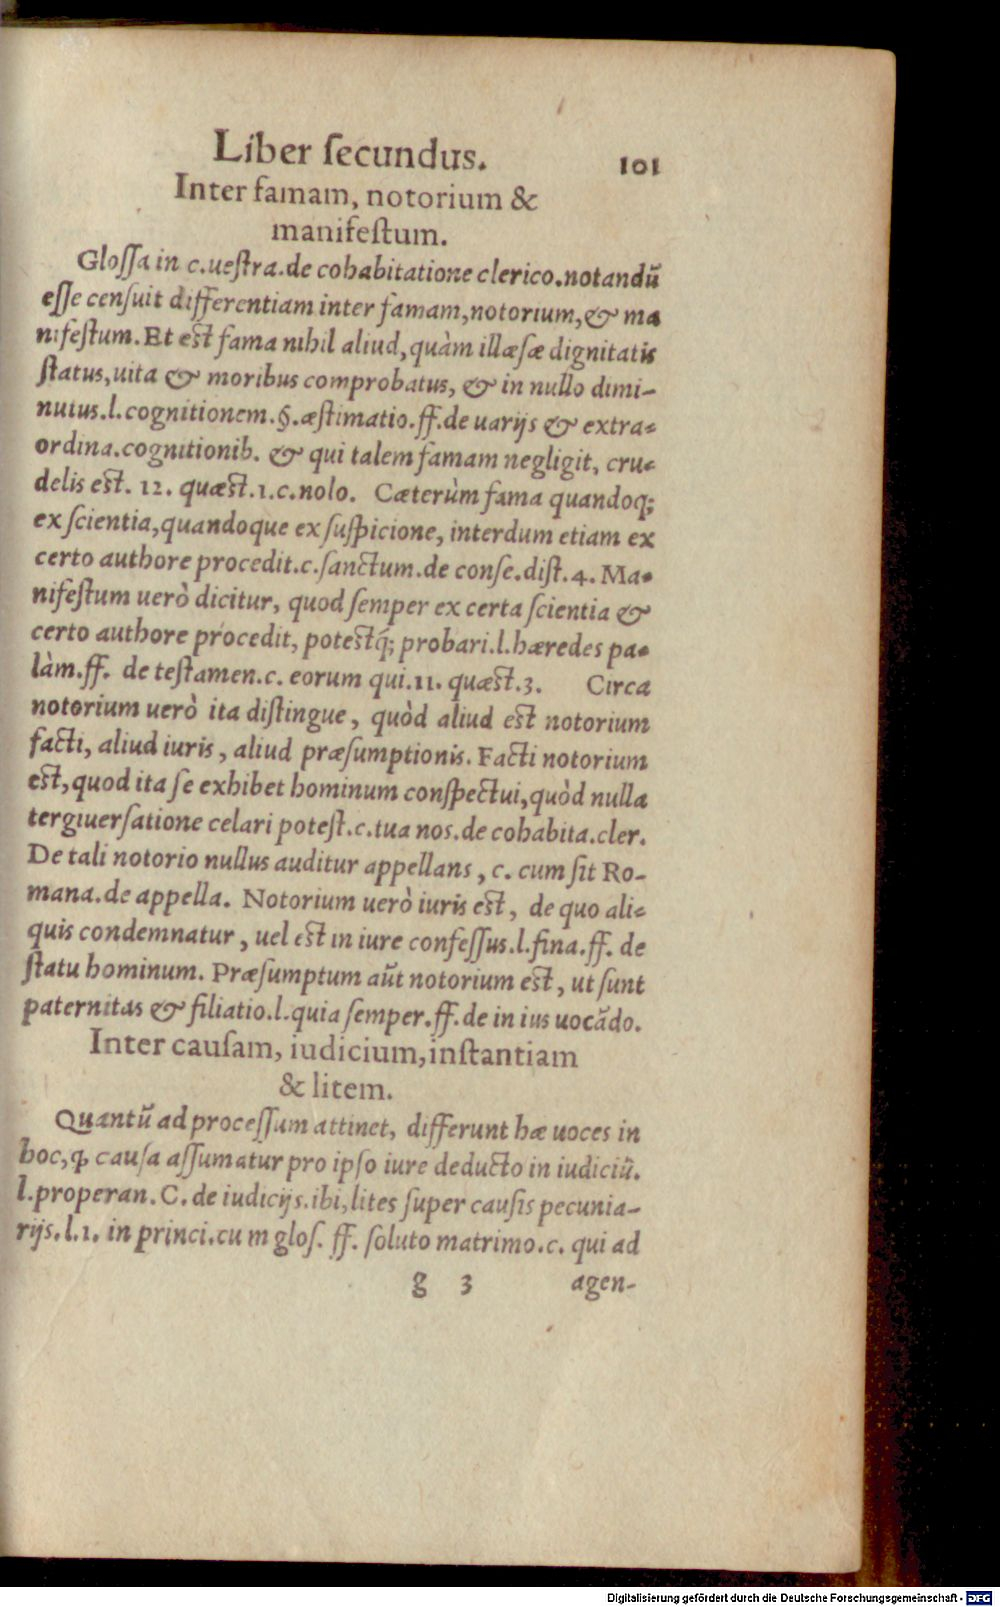 Liber ſecundus. 101
Inter famam, notorium &
manifeſtum.
Gloſſa in c.ueſtra.de cohabitatione clerico.notandũ
eſſe cenſuit differentiam inter famam,notorium,& ma
nifeſtum.Et eſt fama nihil aliud,quàm illæſæ dignitatis
ſtatus,uita & moribus comprobatus, & in nullo dimi-
nutus.l.cognitionem.§.æſtimatio.ff.de uarijs & extra-
ordina.cognitionib. & qui talem famam negligit, cru-
delis eſt. 12. quæſt.1.c.nolo. Cæterùm fama quandoq;
ex ſcientia,quandoque ex ſuſpicione, interdum etiam ex
certo authore procedit.c.ſanctum.de conſe.diſt.4. Ma-
nifeſtum uerò dicitur, quod ſemper ex certa ſcientia &
certo authore procedit, poteſtq́; probari.l.hæredes pa-
làm.ff. de teſtamen.c. eorum qui.11. quæſt.3. Circa
notorium uerò ita diſtingue, quòd aliud eſt notorium
facti, aliud iuris, aliud præſumptionis. Facti notorium
eſt,quod ita ſe exhibet hominum conſpectui,quòd nulla
tergiuerſatione celari poteſt.c.tua nos.de cohabita.cler.
De tali notorio nullus auditur appellans, c. cum ſit Ro-
mana.de appella. Notorium uerò iuris eſt, de quo ali-
quis condemnatur, uel eſt in iure confeſſus.l.fina.ff. de
ſtatu hominum. Præſumptum aũt notorium eſt, ut ſunt
paternitas & filiatio.l.quia ſemper.ff.de in ius uocãdo.
Inter cauſam, iudicium,inſtantiam
& litem.
Quantũ ad proceſſum attinet, differunt hæ uoces in
hoc,ꝙ cauſa aſſumatur pro ipſo iure deducto in iudiciũ.
l.properan.C.de iudicijs.ibi,lites ſuper cauſis pecunia-
rijs.l.1. in princi.cum gloſ. ff. ſoluto matrimo.c. qui ad
g 3 agen-
Digitalisierung gefördert durch die Deutsche Forschungsgemeinschaft - DFG